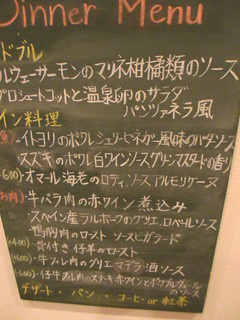 Dinner Menu
ドブル
ルウェーサーモンのマリネ柑橘類のソース
プロシュートコットと温泉卵のサラダ
パンツァネラ風
イン料理
イトヨリのポワレシェリービネガー風味のバターソース
スズキのポワレ白ワインソースグリーンマスタードの香り
オマール海老のロティ ソースアルモリケーヌ
牛バラ肉の赤ワイン煮込み
スペイン産 のグリエ
鴨胸肉のロースト ソースビガラード
骨付き仔羊のロースト
牛フィレ肉のグリエ マデラ酒ソース
のソース
デザート・パン・コーヒー or 紅茶